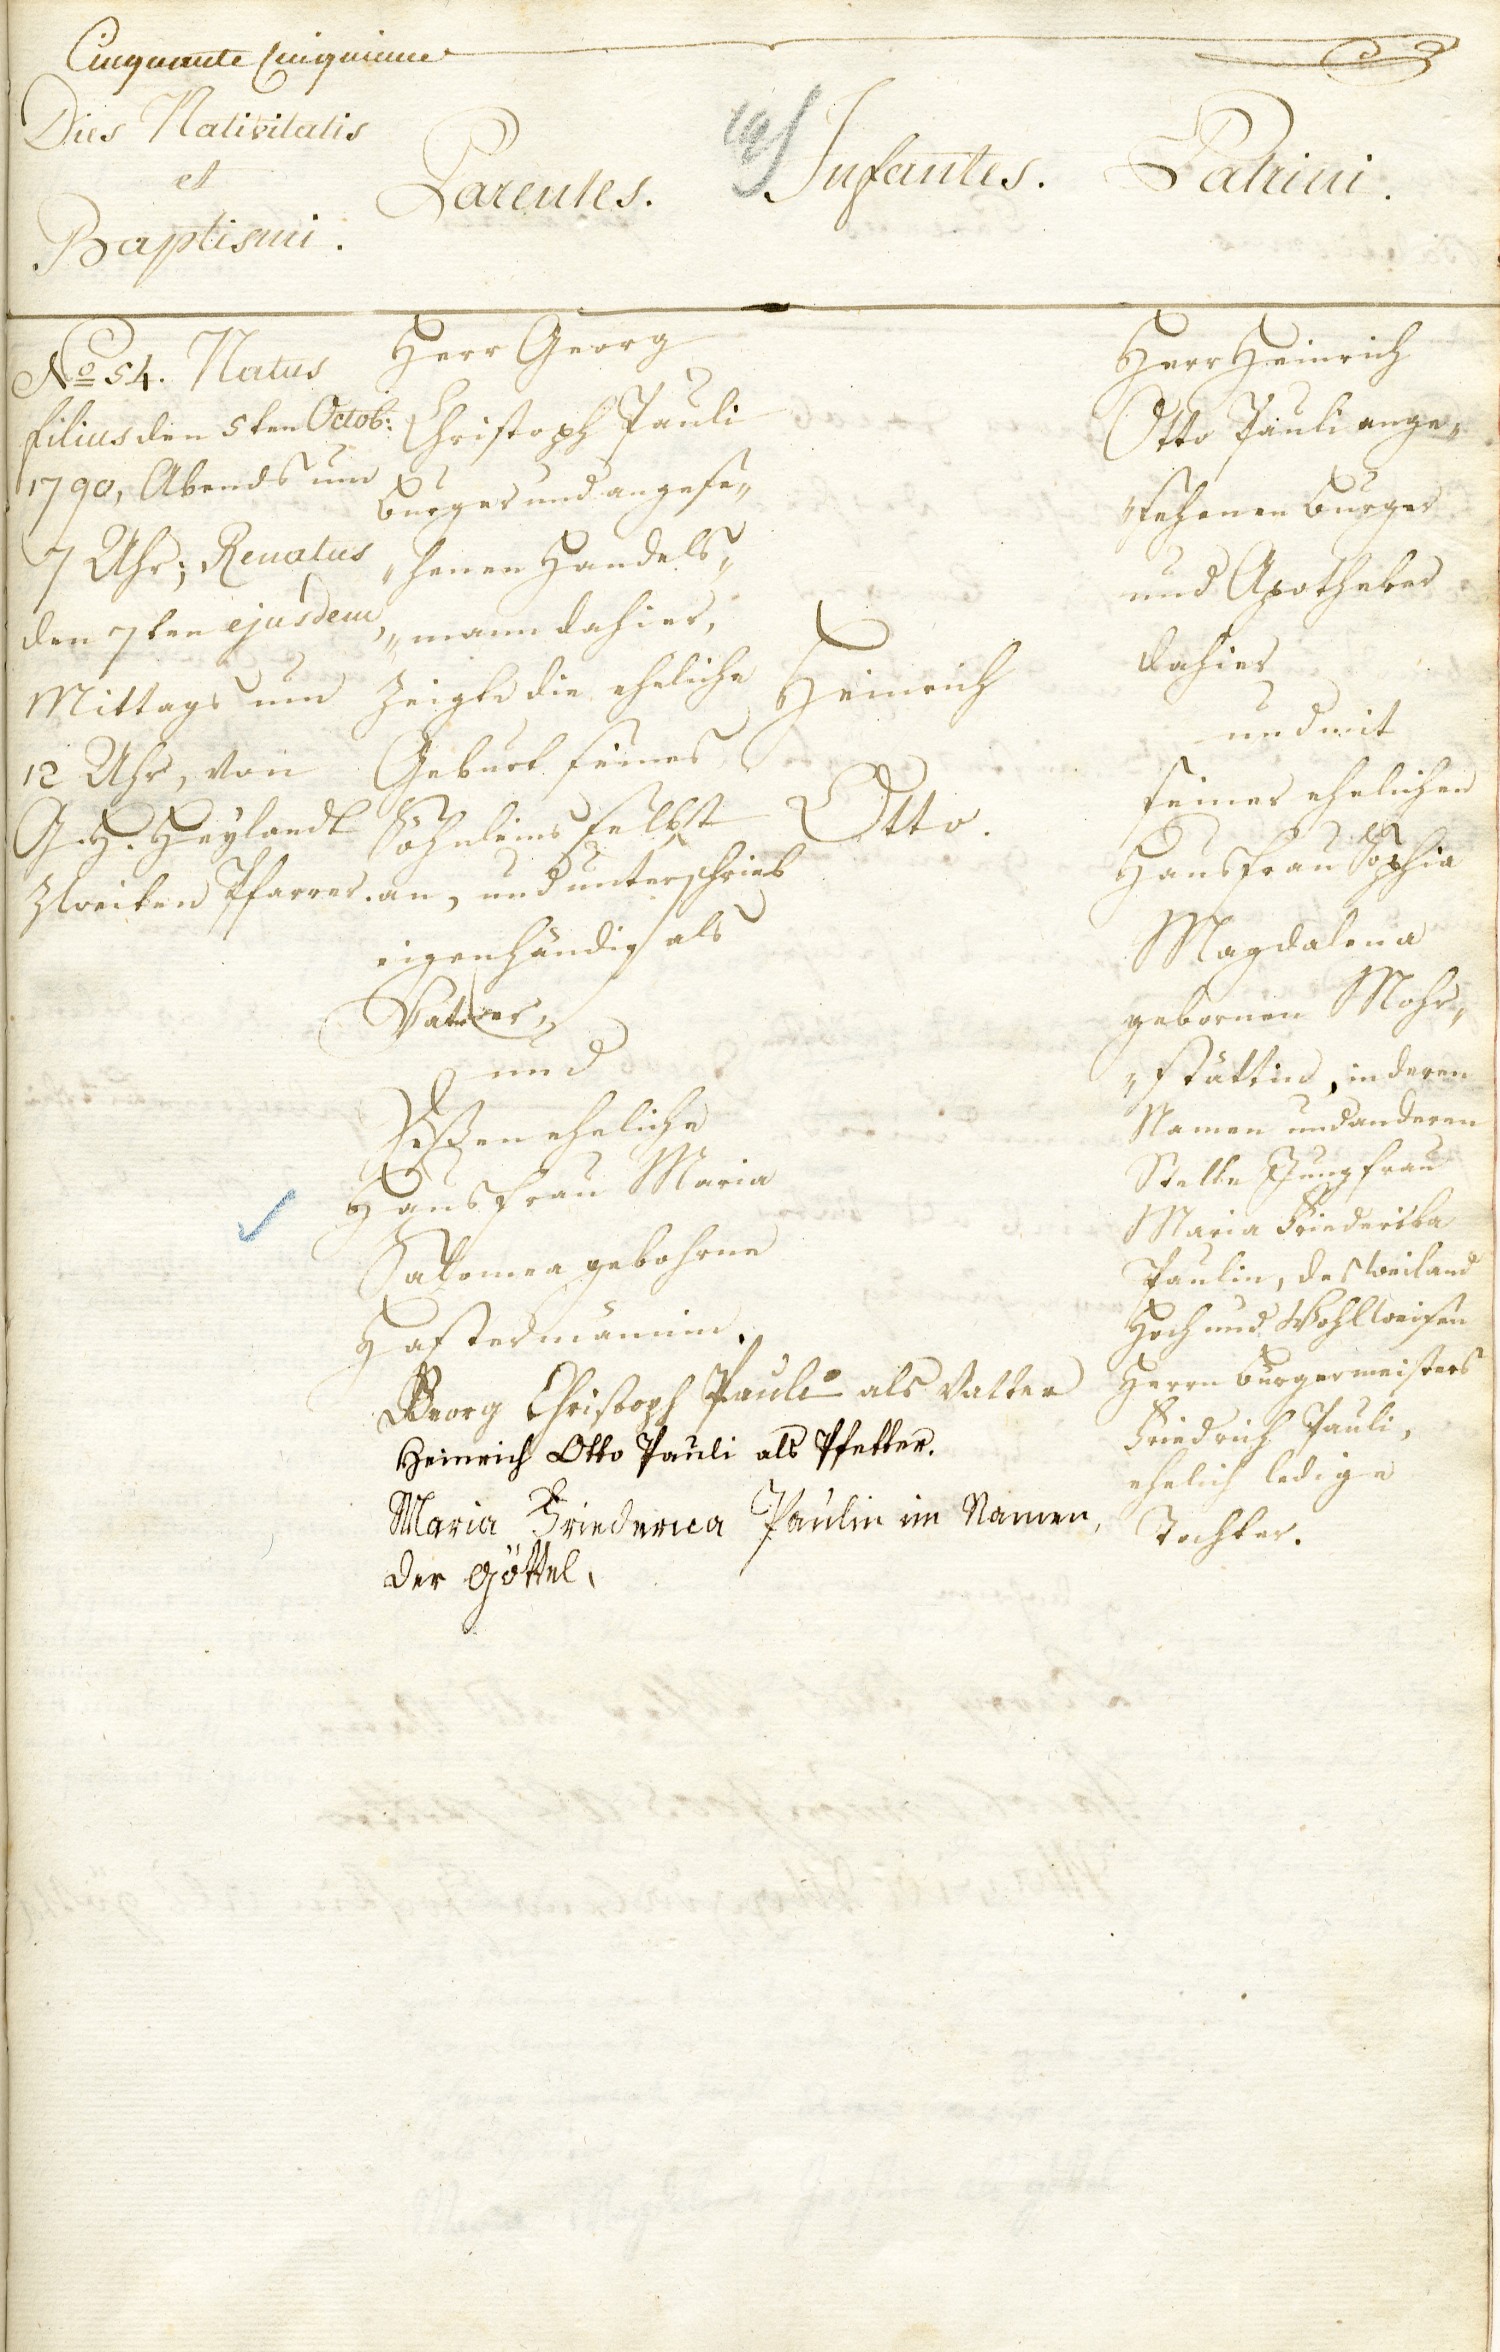 Cinquante Cinquieme
Dies Nativitatis
et
Baptismi.
Parentes.
Infantes.
Patrini.
No 54. Natus
filius den 5ten Octob:
1790, Abends um
7 Uhr; Renatus
den 7ten ejusdem,
Mittags um
12 Uhr, von
G. H. Heylandt
Zweiten Pfarrer.
Herr Georg
Christoph Pauli
burger und angese„
„henen Handels„
„mann dahier,
Zeigte die eheliche
Geburt seines
Söhnleins selbst
an, und unterschrieb
eigenhändig als
Vatter,
und
Deßen eheliche
Hausfrau Maria
Salomea gebohrne
Haftermännin.
Heinrich
Otto.
Herr Heinrich
Otto Pauli ange„
„sehenen burger
und Apotheker
dahier
und mit
seiner ehelichen
Hausfrau Sophia
Magdalena
gebornen Mohr„
„stättin, in deren
Namen und anderen
Stelle Jungfrau
Maria Friederika
Paulin, des weiland
Hoch und Wohlweisen
Herrn burgermeisters
Friedrich Pauli,
ehelich ledige
Tochter.
Georg Christoph Pauli als Vatter
Heinrich Otto Pauli als Pfetter.
Maria Friederica Paulin im Namen,
der Göttel,